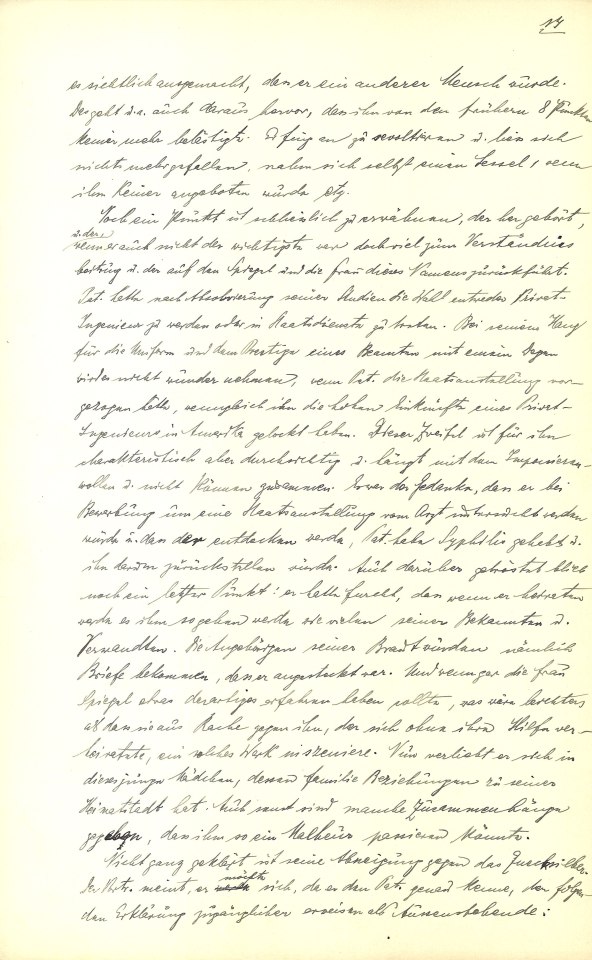 17
es sichtlich ausgemacht, dass er ein anderer Mensch würde.
Das geht u.a. auch daraus hervor, dass ihn von den frühern 8 Punkten
keiner mehr belästigte. Er fing an zu revoltieren u. liess sich
nichts mehr gefallen, nahm sich selbst einen Sessel, wenn
ihm keiner angeboten wurde etz.
Noch ein Punkt ist schliesslich zu erwähnen, der her gehört,
u. der,
wenn er auch nicht der wichtigste war doch viel zum Verständniss
beitrug u. der auf den Spiegel und die Frau dieses Namens zurückführt.
Pat. hatte nach Absolvierung seiner Studien die Wahl entweder Privat-
Ingenieur zu werden oder in Staatsdienste zu treten. Bei seinem Hang
für die Uniform und dem Prestige eines Beamten mit einem Degen
wird es nicht wunder nehmen, wenn Pat. die Staatsanstellung vor-
gezogen hätte, wenngleich ihn die hohen Einkünfte eines Privat-
Ingenieurs in Amerika gelockt haben. Dieser Zweifel ist für ihn
charakteristisch aber durchsichtig u. hängt mit dem Imponieren-
wollen u. nicht können zusammen. Es war der Gedanke, dass er bei
Bewerbung um eine Staatsanstellung vom Arzt untersucht werden
würde u. dass der entdecken werde, Pat. habe Syphilis gehabt u.
ihn darum zurückstellen würde. Auch darüber getröstet blieb
noch ein letzter Punkt: er hatte Furcht, dass wenn er heiraten
werde es ihm so gehen werde wie vielen seiner Bekannten u.
Verwandten. Die Angehörigen seiner Braut würden nämlich
Briefe bekommen, dass er angesteckt war. Und wenn gar die Frau
Spiegel etwas derartiges erfahren haben sollte, was wäre leichter
als dass sie aus Rache gegen ihn, der sich ohne ihre Hilfe ver-
heiratete, ein solches Werk inszeniere. Nun verliebt er sich in
dieses junge Mädchen, dessen Familie Beziehungen zu seiner
Heimatstadt hat. Auch sonst sind manche Zusammenhänge
gegeben, dass ihm so ein Malheur passieren könnte.
Nicht ganz geklärt ist seine Abneigung gegen das Quecksilber.
möchte
Der Vortr. meint, er sich, da er den Pat. genau kenne, der folgen-
den Erklärung zugänglicher erweisen als Aussenstehende: